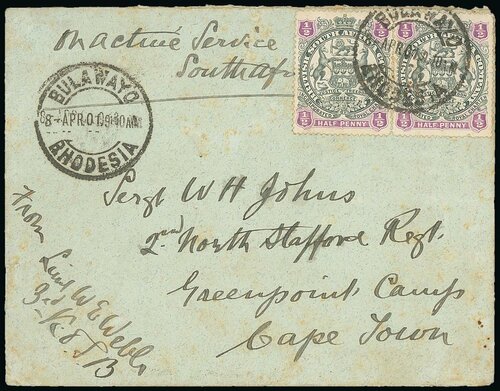 On Active Service
South
BULAWAYO
8-APR 01 9·30AM
RHODESIA
BULAWAYO
APR
RHODESIA
BRITISH SOUTH AFRICA COMPANY
1/2 HALF PENNY 1/2
1/2 HALF PENNY 1/2
Sergt W H Johns
2nd North Stafford Regt.
Greenpoint Camp
Cape Town
From Lieut W E Webb
3rd